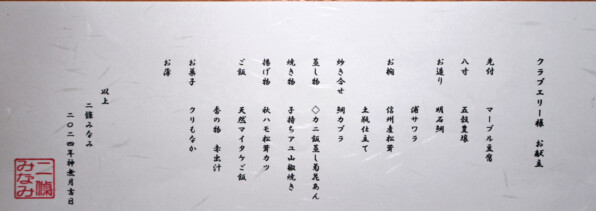 クラブエリー様　お献立
先付　マーブル豆腐
八寸　五穀豊穣
お造り　明石鯛
浦サワラ
お椀　信州産松茸
土瓶仕立て
炒き合せ　鯛カブラ
蒸し物　◇カニ飯蒸し菊花あん
焼き物　子持ちアユ山椒焼き
揚げ物　秋ハモ松茸カツ
ご飯　天然マイタケご飯
香の物　赤出汁
お菓子　クリもなか
お薄
以上
二條みなみ
二〇二四年神無月吉日
二條
みなみ